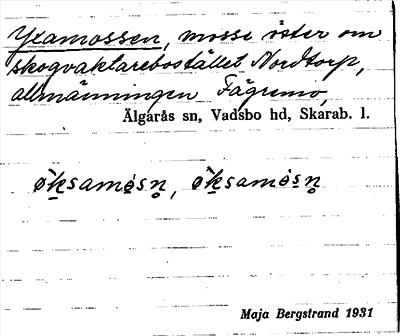 Yxamossen, mosse öster om
skogvaktarebostället Nordtorp,
allmänningen Fägremo,
Älgarås sn, Vadsbo hd, Skarab. l.
ø̀k̠samos̠n̥, ø̀k̠samòs̠n̥
Maja Bergstrand 1931